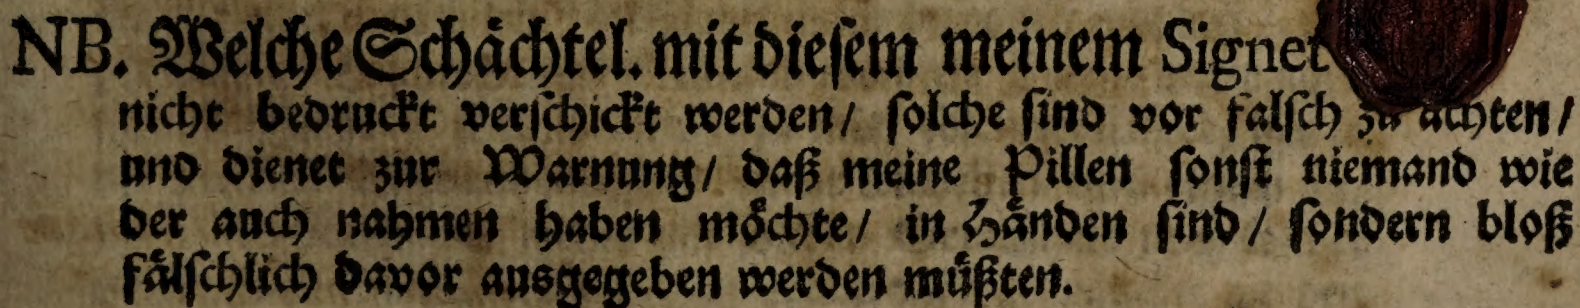 NB. Welche Schächtel. mit diesem meinem Signet
nicht bedruckt verschickt werden/ solche sind vor falsch zu achten/
und dienet zur Warnung/ daß meine Pillen sonst niemand wie
der auch nahmen haben möchte/ in Händen sind/ sondern bloß
fälschlich davor ausgegeben werden müßten.